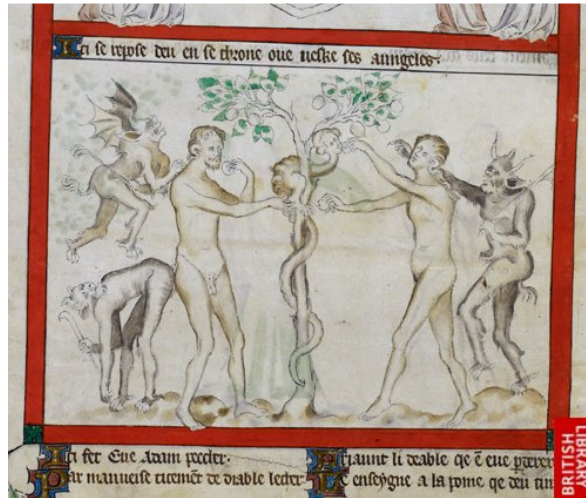 Ici se repose deu en se throne oue ueske ses aungeles.
Ici fet Eue Adam peccler.
Par mauueise ticement de diable
riaunt li deable qe
enseygne a la pome qe deu
BRITISH
LIBRARY